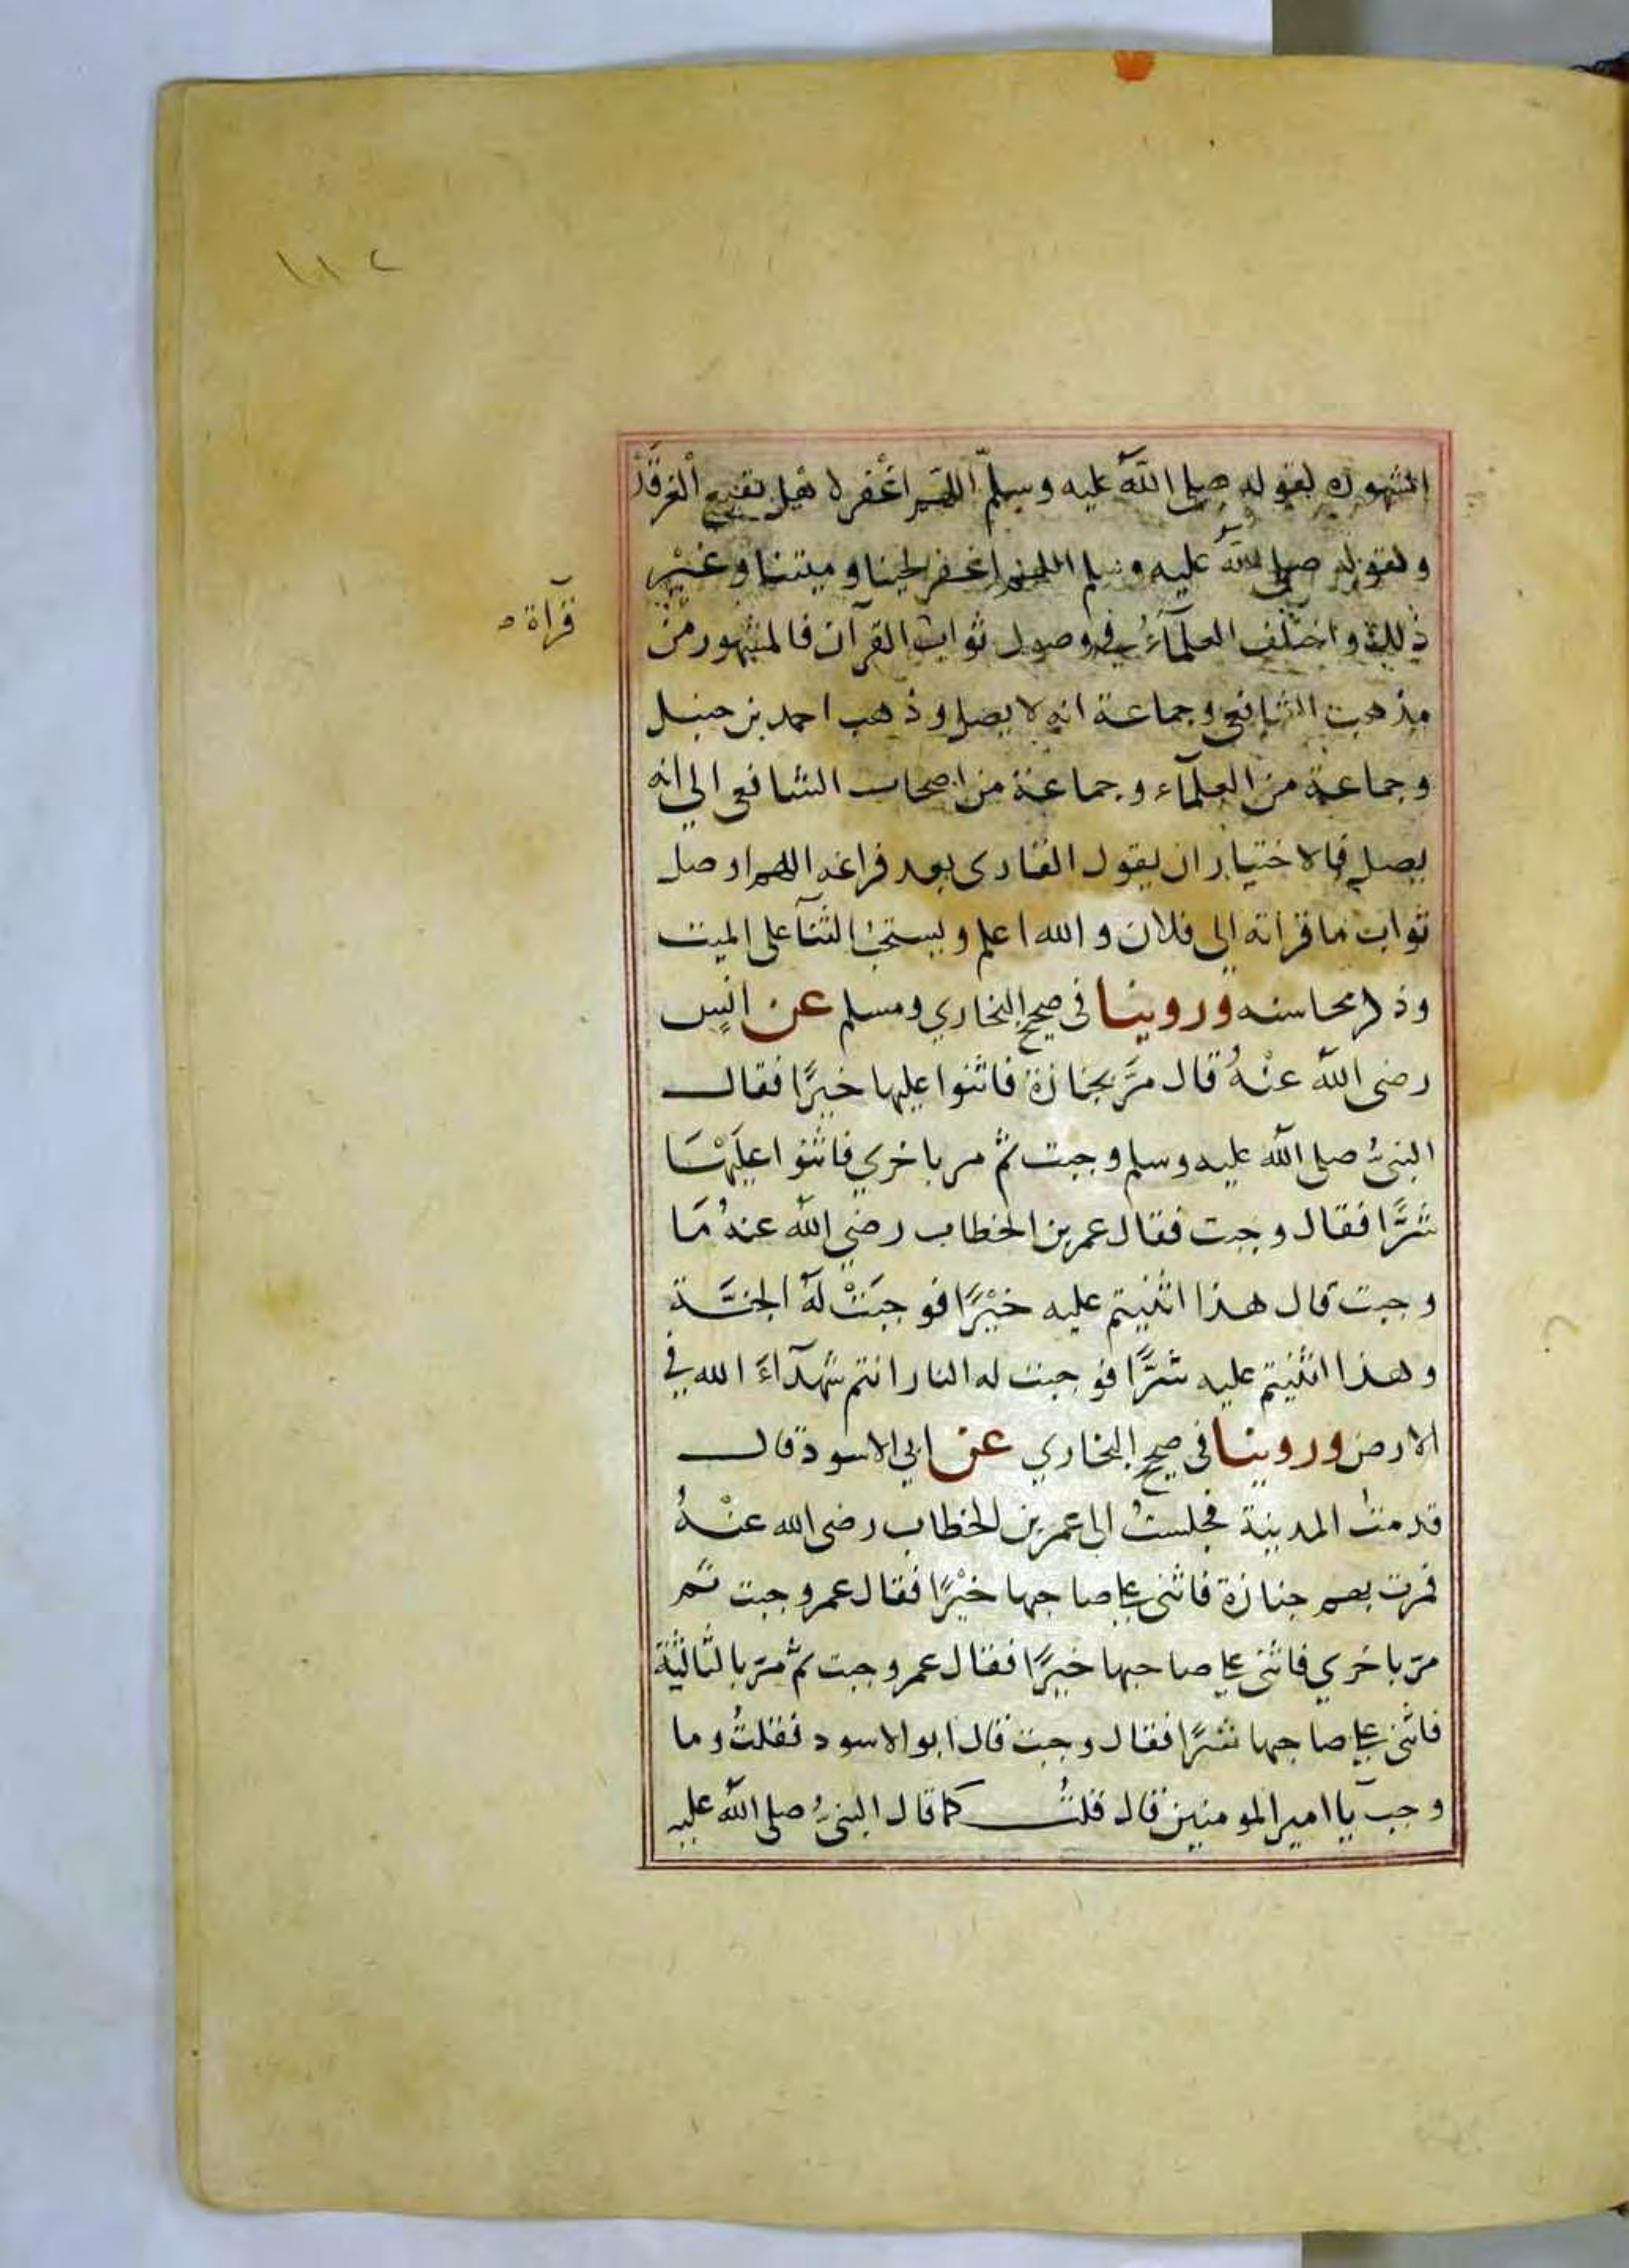 ١١٢
المشهورة لقوله صلى الله عليه وسلم اللهم اغفر لاهل بقيع الغرقد
ولقوله صلى الله عليه وسلم اللهم اغفر لحينا وميتنا وغير
ذلك واختلف العلمآء في وصول ثواب القرآن فالمشهور من
قرآة
مذهب الشافعي وجماعة انه لا يصل وذهب احمد بن حنبل
وجماعة من العلمآء وجماعة من اصحاب الشافعي الى انه
يصل فالاختيار ان يقول القارى بعد فراغه اللهم اوصل
ثواب ما قراته الى فلان والله اعلم ويستحب الثنآ على الميت
وذكر محاسنه وروينا فى صحيح البخاري ومسلم عن انس
رضى الله عنْهُ قال مرَّ بجنازة فاثنوا عليها خيرًا فقال
النبيُّ صلى الله عليه وسلم وجبت ثمّ مر باخري فاثنوا عليهَا
شرًّا فقال وجبت فقال عمر بن الخطاب رضي الله عنهُ مَا
وجبت قال هذا اثنيتم عليه خيْرًا فوجبَتْ لَهُ الجنَّة
وهذا اثنيتم عليه شرًّا فوجبت له النار انتم شهدآءَ الله في
الارض وروينا فى صحيح البخاري عن ابي الاسود قال
قدمتُ المدينة فجلستُ الى عمر بن الخطاب رضى الله عنْهُ
فمرت بهم جنازة فاثنى على صاحبها خيْرًا فقال عمر وجبت ثم
مرّ باخري فاثنى على صاحبها خيرًا فقال عمر وجبت ثمّ مرّ بالثالثة
فاثنى على صاحبها شرًا فقال وجبت قال ابو الاسود فقلتُ وما
وجب يآ امير المومنين قال قلتُ كما قال النبيُّ صلى الله عليه